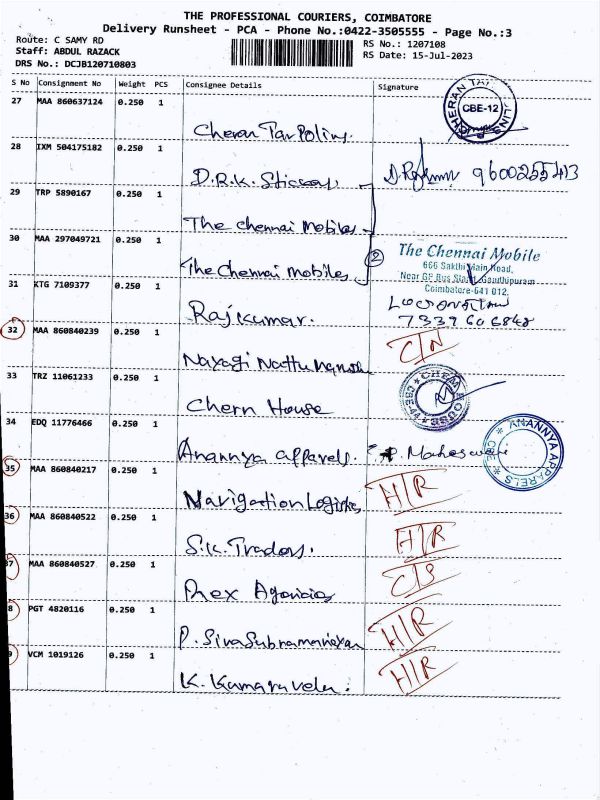 THE PROFESSIONAL COURIERS, COIMBATORE
Delivery Runsheet - PCA - Phone No.:0422-3505555 - Page No.:3
Route: C SAMY RD
RS No.: 1207108
Staff: ABDUL RAZACK
RS Date: 15-Jul-2023
DRS No.: DCJB120710803
S No Consignment No Weight PCS Consignee Details Signature
27 MAA 860637124 0.250 1
CBE-12
Cheran Tarpolins.
28 IXM 504175182 0.250 1
D.R.K. Stickers 9600255413
29 TRP 5890167 0.250 1
The Chennai Mobiles
30 MAA 297049721 0.250 1
2
The Chennai Mobile
666 Sakthi Main Road,
Near GP Bus Stand, Gandhipuram
Coimbatore-641 012.
The chennai mobiles
31 KTG 7109377 0.250 1
Rajkumar.
7339606848
32 MAA 860840239 0.250 1 C/N
Nayagi Nattu
33 TRZ 11061233 0.250 1
CHEM HOUSE CBE-44
Chem House
34 EDQ 11776466 0.250 1
ANANNYA APPARELS CBE
Anannya apparels. P. Maheswari
35 MAA 860840217 0.250 1 H/R
Navigation Logistics
36 MAA 860840522 0.250 1 H/R
S.K. Traders.
37 MAA 860840527 0.250 1 C/S
Rex Agencies
8 PGT 4820116 0.250 1 H/R
P. SivaSubramaniyan
9 VCM 1019126 0.250 1 H/R
K. Kumaravelu.